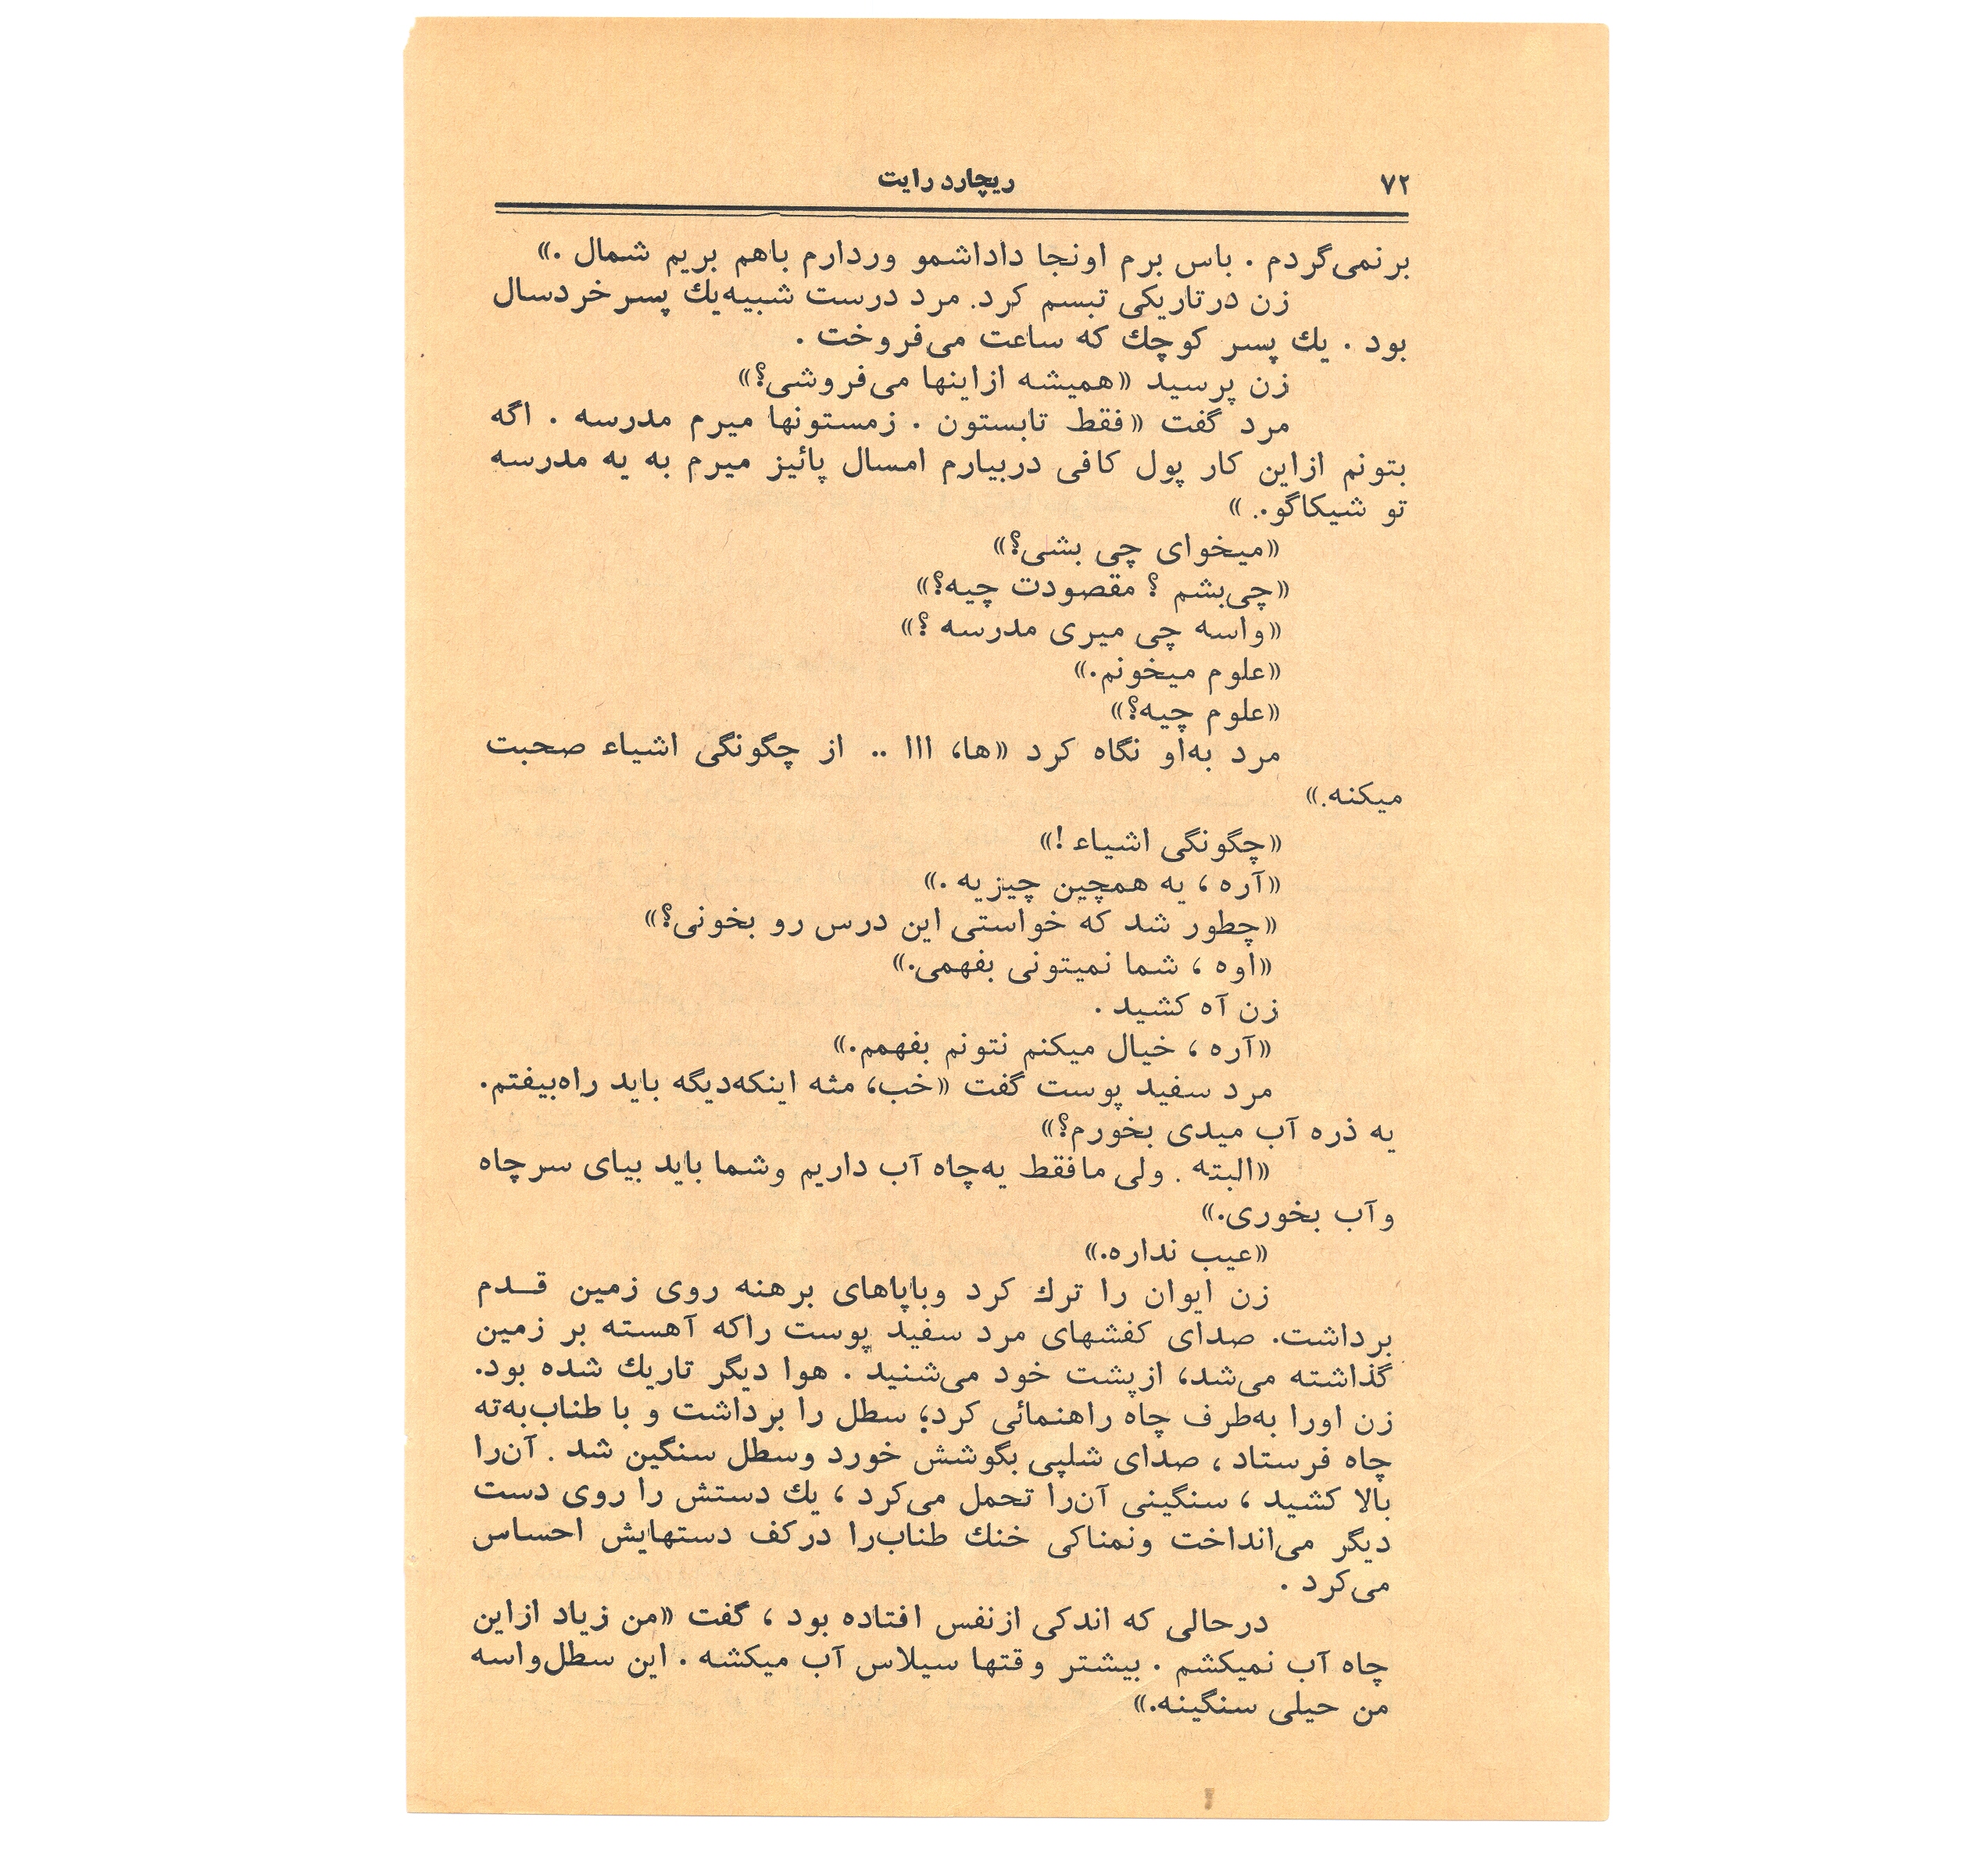 ۷۲
ریچارد رایت
برنمی‌گردم . باس برم اونجا داداشمو وردارم باهم بریم شمال .»
زن درتاریکی تبسم کرد. مرد درست شبیه‌یك پسرخردسال
بود . یك پسر کوچك که ساعت می‌فروخت .
زن پرسید «همیشه ازاینها می‌فروشی؟»
مرد گفت «فقط تابستون . زمستونها میرم مدرسه . اگه
بتونم ازاین کار پول کافی دربیارم امسال پائیز میرم به یه مدرسه
تو شیکاگو.. »
«میخوای چی بشی؟»
«چی‌بشم ؟ مقصودت چیه؟»
«واسه چی میری مدرسه ؟»
«علوم میخونم.»
«علوم چیه؟»
مرد به‌او نگاه کرد «ها، ااا .. از چگونگی اشیاء صحبت
میکنه.»
«چگونگی اشیاء !»
«آره ، یه همچین چیزیه .»
«چطور شد که خواستی این درس رو بخونی؟»
«اوه ، شما نمیتونی بفهمی.»
زن آه کشید .
«آره ، خیال میکنم نتونم بفهمم.»
مرد سفید پوست گفت «خب، مثه اینکه‌دیگه باید راه‌بیفتم.
یه ذره آب میدی بخورم؟»
«البته . ولی مافقط یه‌چاه آب داریم وشما باید بیای سرچاه
وآب بخوری.»
«عیب نداره.»
زن ایوان را ترك کرد وباپاهای برهنه روی زمین قـدم
برداشت. صدای کفشهای مرد سفید پوست راکه آهسته بر زمین
گذاشته می‌شد، ازپشت خود می‌شنید . هوا دیگر تاریك شده بود.
زن اورا به‌طرف چاه راهنمائی کرد؛ سطل را برداشت و با طناب‌به‌ته
چاه فرستاد ، صدای شلپی بگوشش خورد وسطل سنگین شد . آن‌را
بالا کشید ، سنگینی آن‌را تحمل می‌کرد ، یك دستش را روی دست
دیگر می‌انداخت ونمناکی خنك طناب‌را درکف دستهایش احساس
می‌کرد .
درحالی که اندکی ازنفس افتاده بود ، گفت «من زیاد ازاین
چاه آب نمیکشم . بیشتر وقتها سیلاس آب میکشه . این سطل‌واسه
من حیلی سنگینه.»